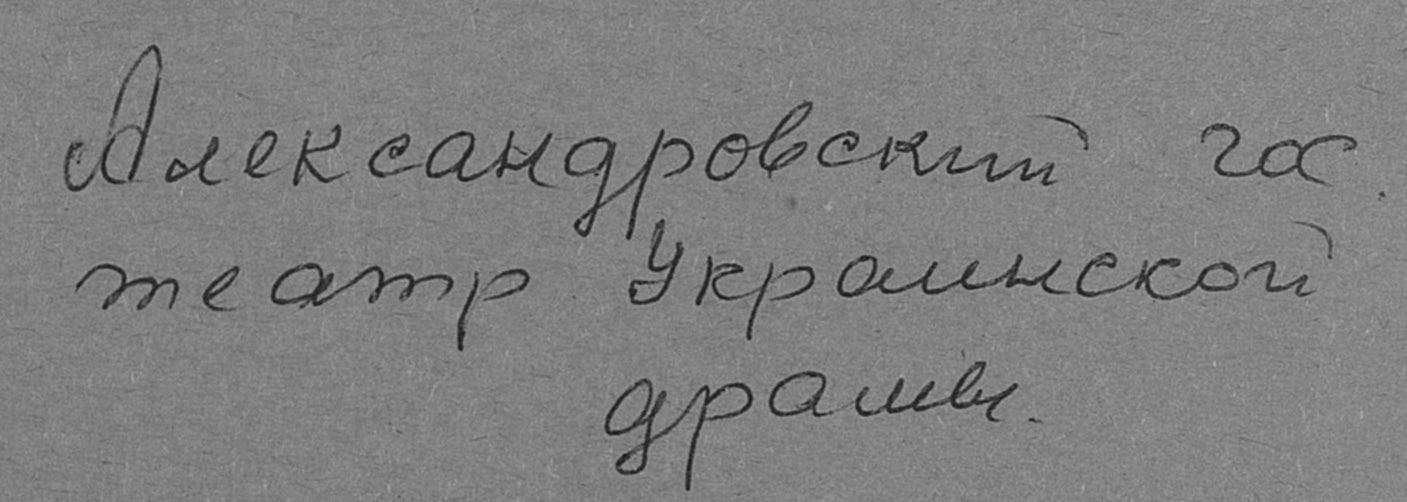 Александровский гос.
театр Украинской
драмы.